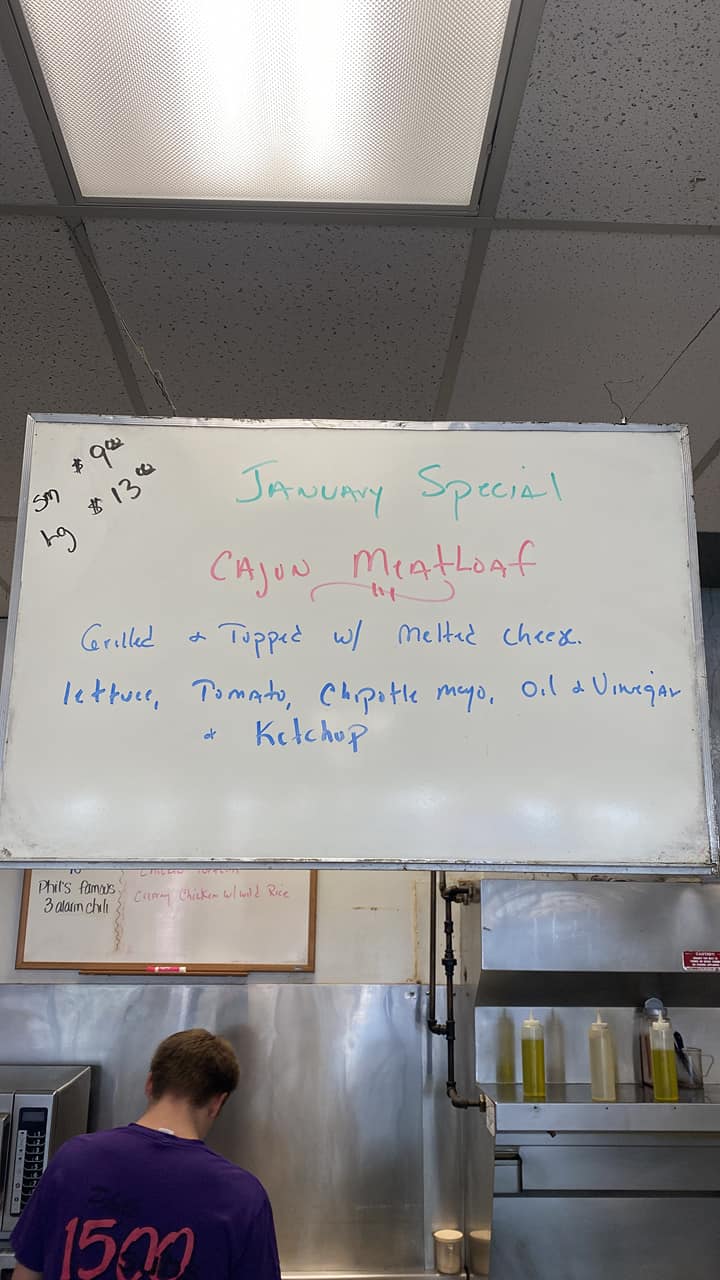 sm $ 9.00
Lg $ 13.00
January Special
Cajun Meatloaf
Grilled & Topped w/ Melted cheese.
lettuce, Tomato, Chipotle mayo, Oil & Vinegar
& Ketchup
Phil's famous
3 alarm chili
Creamy Chicken w/ wild Rice
CAUTION
1500